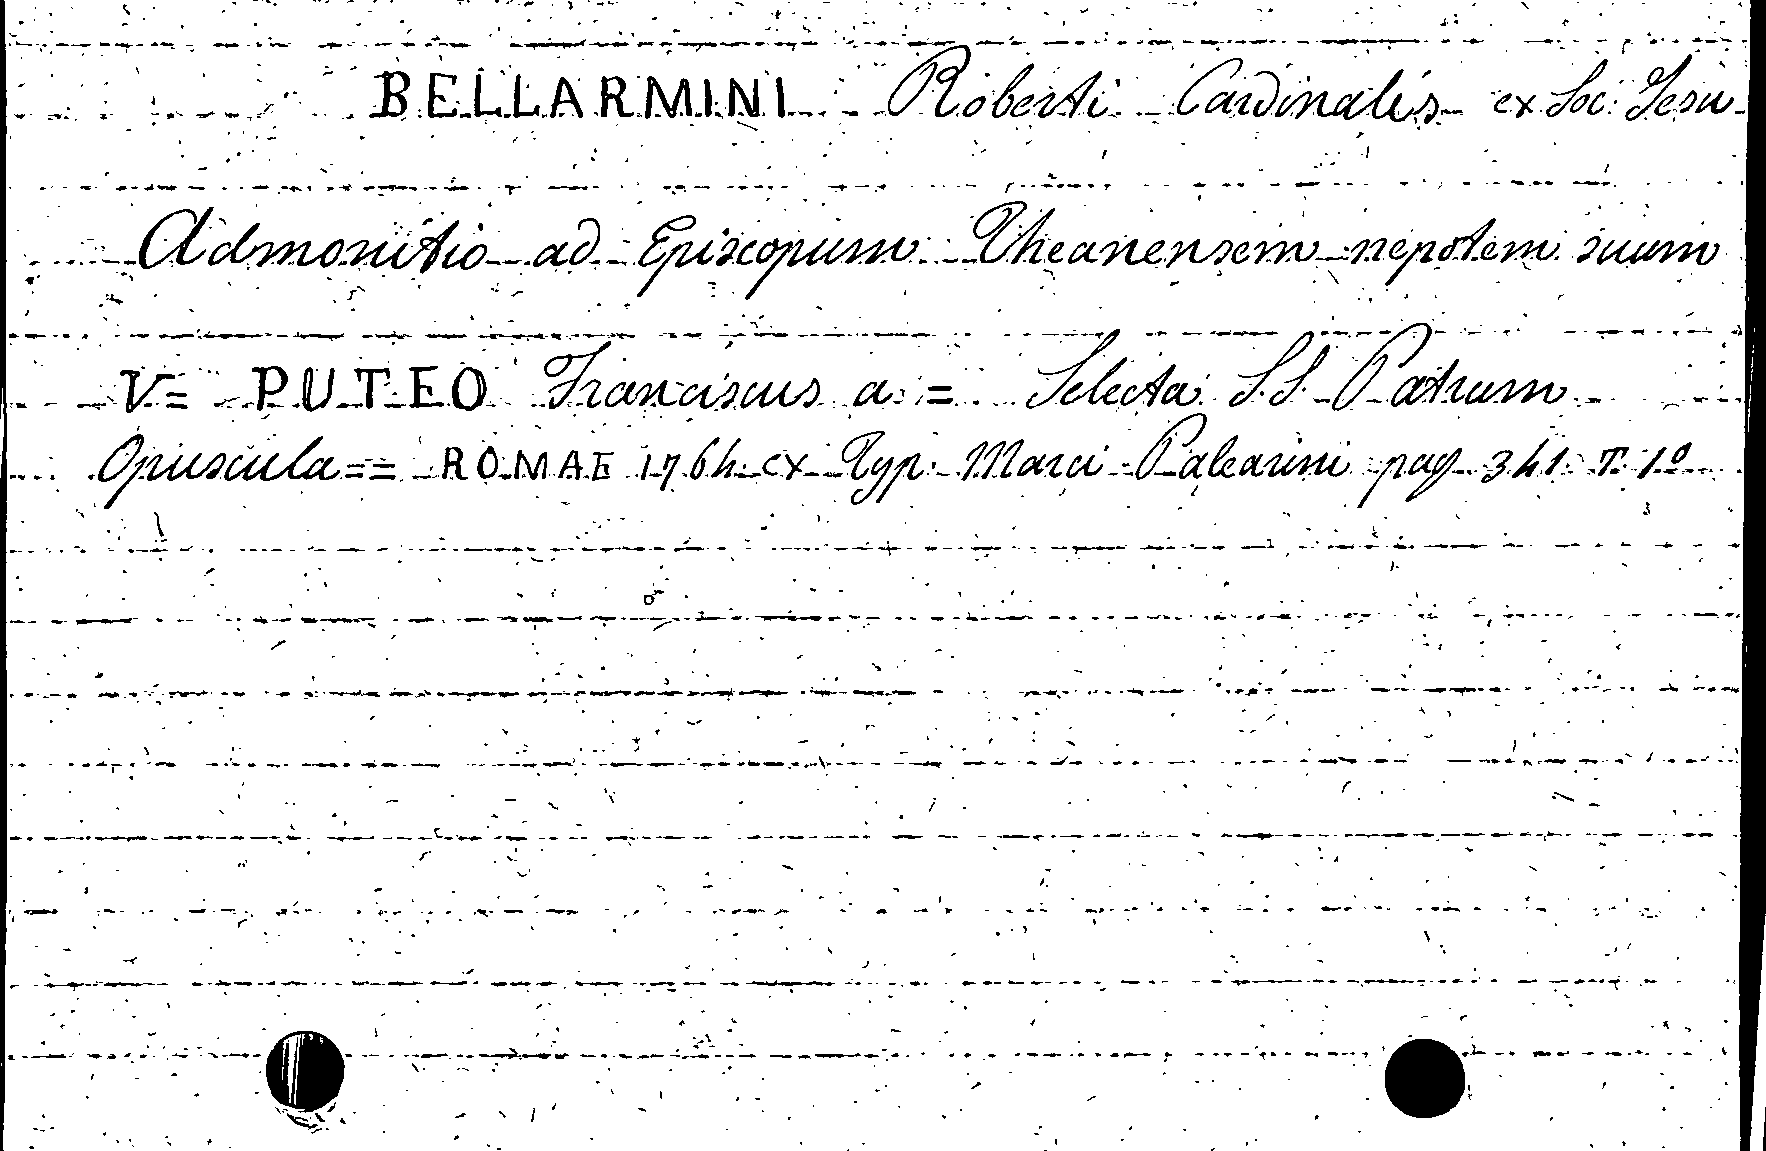 BELLARMINI Roberti Cardinalis ex Soc: Jesu
Admonitio ad Episcopum Theanensem nepotem suum
V= PUTEO Franciscus a = Selecta S.S. Patrum
Opuscula == ROMAE 1764 ex Typ. Marci Palearini pag 341 T. 1º